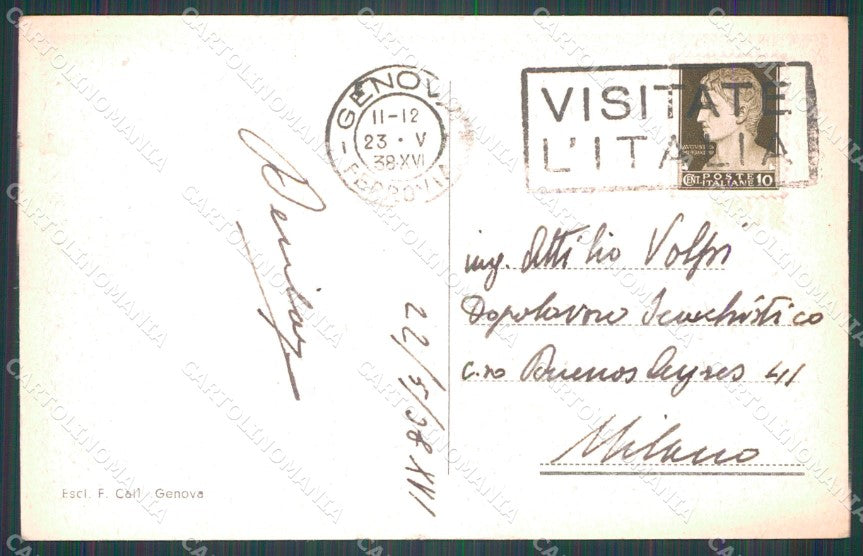 GENOVA
11-12
23 · V
38·XVI
FERROVIA
VISITATE
L'ITALIA
POSTE
CENT. ITALIANE 10
22/5/38 XVI
ing. Attilio Volpi
Dopolavoro Scacchistico
c.so Buenos Ayres 41
Milano
Escl. F. Calì Genova
CARTOLINOMANIA